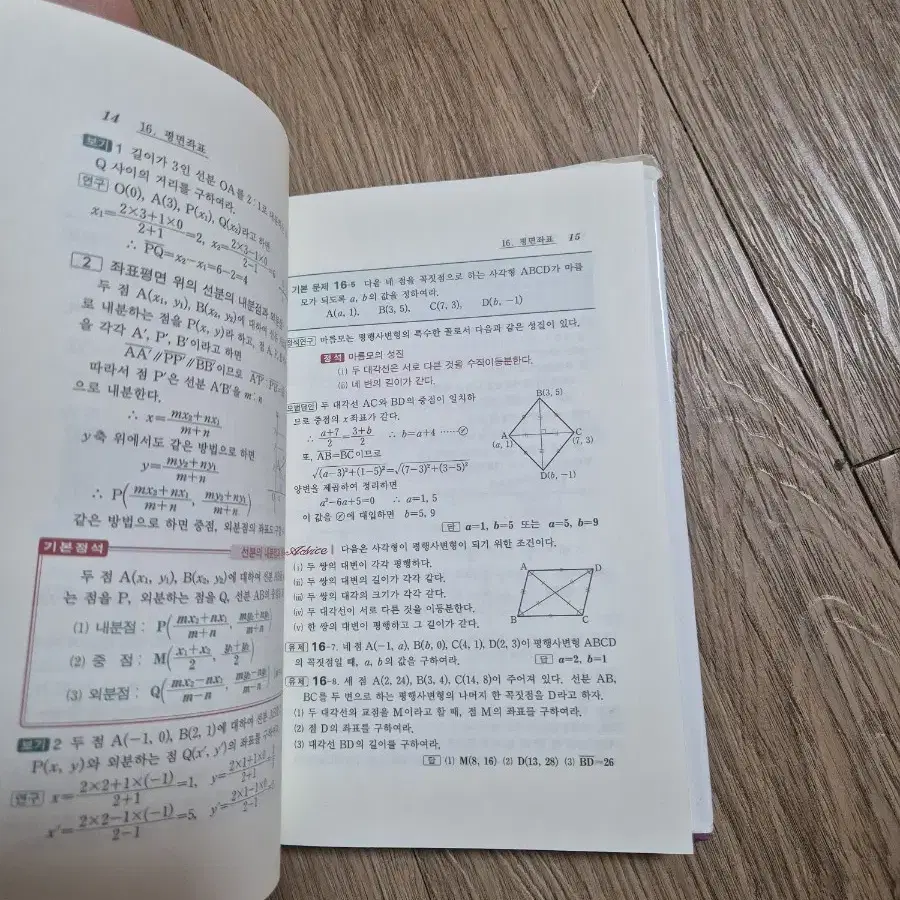 14 16. 평면좌표
보기 1 길이가 3인 선분 OA를 2 : 1로
Q 사이의 거리를 구하여라.
연구 O(0), A(3), P(x₁), Q(x₂)라고 하면
x₁=(2×3+1×0)/(2+1)=2, x₂=(2×3-1×0)/(2-1)=6
∴ PQ=x₂-x₁=6-2=4
2 좌표평면 위의 선분의 내분점과
두 점 A(x₁, y₁), B(x₂, y₂)에 대하여 선분
로 내분하는 점을 P(x, y)라 하고, 점 A, P, B
을 각각 A′, P′, B′이라고 하면
AA′ // PP′ // BB′이므로
따라서 점 P′은 선분 A′B′을 m : n
으로 내분한다.
∴ x=(mx₂+nx₁)/(m+n)
y축 위에서도 같은 방법으로 하면
y=(my₂+ny₁)/(m+n)
∴ P((mx₂+nx₁)/(m+n), (my₂+ny₁)/(m+n))
같은 방법으로 하면 중점, 외분점의 좌표도
기본정석 선분의 내분점과
두 점 A(x₁, y₁), B(x₂, y₂)에 대하여 선분
는 점을 P, 외분하는 점을 Q, 선분 AB의
(1) 내분점 : P((mx₂+nx₁)/(m+n), (my₂+ny₁)/(m+n))
(2) 중 점 : M((x₁+x₂)/2, (y₁+y₂)/2)
(3) 외분점 : Q((mx₂-nx₁)/(m-n), (my₂-ny₁)/(m-n))
보기 2 두 점 A(-1, 0), B(2, 1)에 대하여 선분
P(x, y)와 외분하는 점 Q(x′, y′)의 좌표를 구하여라.
연구 x=(2×2+1×(-1))/(2+1)=1, y=(2×1+1×0)/(2+1)
x′=(2×2-1×(-1))/(2-1)=5, y′=(2×1-1×0)/(2-1)
16. 평면좌표 15
기본 문제 16-5 다음 네 점을 꼭짓점으로 하는 사각형 ABCD가 마름
모가 되도록 a, b의 값을 정하여라.
A(a, 1), B(3, 5), C(7, 3), D(b, -1)
정석연구 마름모는 평행사변형의 특수한 꼴로서 다음과 같은 성질이 있다.
정석 마름모의 성질
(i) 두 대각선은 서로 다른 것을 수직이등분한다.
(ii) 네 변의 길이가 같다.
모범답안 두 대각선 AC와 BD의 중점이 일치하
므로 중점의 x좌표가 같다.
∴ (a+7)/2=(3+b)/2 ∴ b=a+4 ······②
또, AB=BC이므로
√((a-3)²+(1-5)²)=√((7-3)²+(3-5)²)
양변을 제곱하여 정리하면
a²-6a+5=0 ∴ a=1, 5
이 값을 ②에 대입하면 b=5, 9
답 a=1, b=5 또는 a=5, b=9
B(3, 5)
A
(a, 1)
C
(7, 3)
D(b, -1)
Advice 다음은 사각형이 평행사변형이 되기 위한 조건이다.
(i) 두 쌍의 대변이 각각 평행하다.
(ii) 두 쌍의 대변의 길이가 각각 같다.
(iii) 두 쌍의 대각의 크기가 각각 같다.
(iv) 두 대각선이 서로 다른 것을 이등분한다.
(v) 한 쌍의 대변이 평행하고 그 길이가 같다.
A D
B C
유제 16-7. 네 점 A(-1, a), B(b, 0), C(4, 1), D(2, 3)이 평행사변형 ABCD
의 꼭짓점일 때, a, b의 값을 구하여라. 답 a=2, b=1
유제 16-8. 세 점 A(2, 24), B(3, 4), C(14, 8)이 주어져 있다. 선분 AB,
BC를 두 변으로 하는 평행사변형의 나머지 한 꼭짓점을 D라고 하자.
(1) 두 대각선의 교점을 M이라고 할 때, 점 M의 좌표를 구하여라.
(2) 점 D의 좌표를 구하여라.
(3) 대각선 BD의 길이를 구하여라.
답 (1) M(8, 16) (2) D(13, 28) (3) BD=26